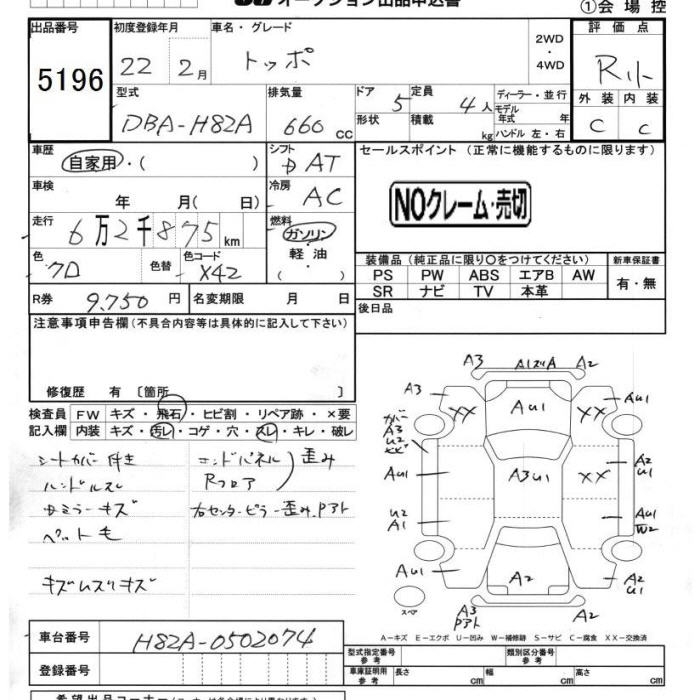 オークション出品申込書 ①会場控
出品番号 初度登録年月 車名・グレード 評価点
5196 22 2月 トッポ 2WD ・ 4WD R小
型式 排気量 ドア 定員 ディーラー・並行 外装 内装
DBA-H82A 660 cc 5 4人 モデル年式 年 C C
形状 積載 kg ハンドル 左・右
車歴 シフト セールスポイント (正常に機能するものに限ります)
自家用・( ) AT
車検 冷房
年 月( 日) AC NOクレーム・売切
走行 燃料
6万2千875km ガソリン・軽油 ( )
色 色替 色コード X42
装備品(純正品に限り○をつけてください) 新車保証書
PS PW ABS エアB AW 有・無
SR ナビ TV 本革
R券 9,750円 名変期限 月 日 後日品
注意事項申告欄(不具合内容等は具体的に記入して下さい)
修復歴 有 〔箇所 〕
検査員 FW キズ・飛石・ヒビ割・リペア跡・×要
記入欄 内装 キズ・汚レ・コゲ・穴・スレ・キレ・破レ
シートカバー付き エンドパネル 歪み
ハンドルスレ Rフロア
ミラーキズ 右センターピラー歪み.Pアト
ペット毛
キズムスリキズ
A3 A1ズリA A2
A3 XX AU1 XX A2
カバーA3
U2
XX
AU1 A3U1 XX A2 U1
U2 A1 AU1 W2
AU1 A2 A2 U1
スペア A3 Pアト A2
A-キズ E-エクボ U-凹み W-補修跡 S-サビ C-腐食 XX-交換済
車台番号 H82A-0502074
型式指定番号 参考 類別区分番号 参考
登録番号 車庫証明用 参考 長さ cm 幅 cm 高さ cm
希望出品コーナー